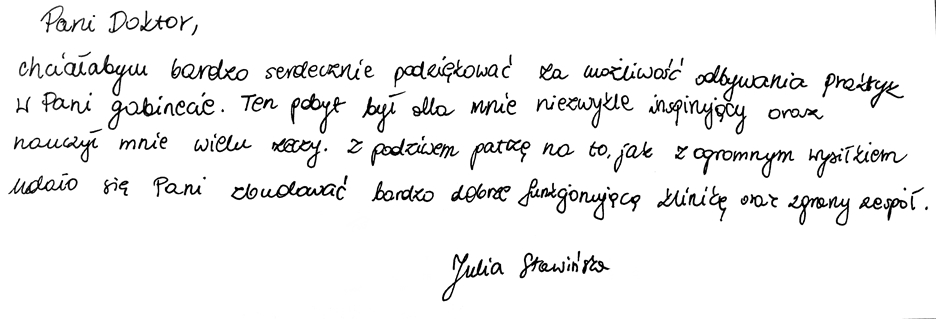 Pani Doktor,
chciałabym bardzo serdecznie podziękować za możliwość odbywania praktyk
w Pani gabinecie. Ten pobyt był dla mnie niezwykle inspirujący oraz
nauczył mnie wielu rzeczy. Z podziwem patrzę na to, jak z ogromnym wysiłkiem
udało się Pani zbudować bardzo dobrze funkcjonującą klinikę oraz zgrany zespół.
Julia Stawińska